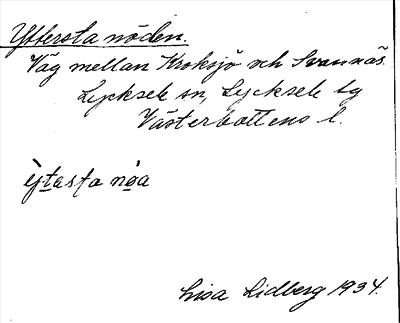 Yttersta nöden.
Väg mellan Kroksjö och Svannäs.
Lycksele sn, Lycksele tg
Västerbottens l.
ỳtasta nöa
Lisa Lidberg 1934.